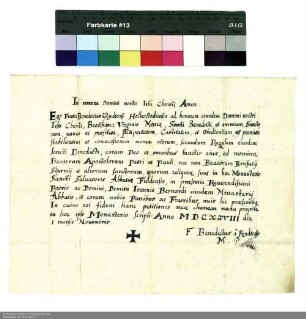 Farbkarte #13
In nomine Domini nostri Iesu Christi Amen.
Ego Frater Benedictus Halberstadensis ad honorem eiusdem Domini nostri
Iesu Christi, Beatissimæ Virginis Mariæ, Sancti Benedicti et omnium Sancto
rum voveo et profiteor Castitatem, et obedientiam et
stabilitatem et conversionem morum meorum, secundum Regulam eiusdem
Sancti Benedicti, coram Deo et omnibus sanctis eius, ad nomina
Beatorum Apostolorum Petri et Pauli, nec non Beatorum Bonifacij
Sturmij et aliorum sanctorum quorum reliquiæ sunt in hoc Monasterio
Sancti Salvatoris Abbatiæ Fuldensis, in præsentia Reverendissimi
Patris ac Domini, Domini Ioannis Bernardi eiusdem Monasterij
Abbatis, et coram
In cuius rei fidem hanc petitionem meam manu propria
in hoc Monasterio scripsi Anno MDCXXVIII die
1 mensis Novembris
F Benedictus